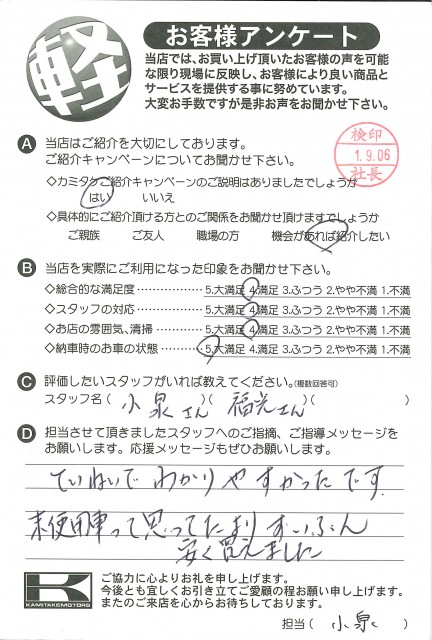 軽
お客様アンケート
当店では、お買い上げ頂いたお客様の声を可能
な限り現場に反映し、お客様により良い商品と
サービスを提供する事に努めています。
大変お手数ですが是非お声をお聞かせ下さい。
検印
1.9.06
社長
A 当店はご紹介を大切にしております。
ご紹介キャンペーンについてお聞かせ下さい。
◇カミタケご紹介キャンペーンのご説明はありましたでしょうか
はい いいえ
◇具体的にご紹介頂ける方とのご関係をお聞かせ頂けますでしょうか
ご親族 ご友人 職場の方 機会があれば紹介したい
B 当店を実際にご利用になった印象をお聞かせ下さい。
◇総合的な満足度 ・・・・・・・・・・ 5.大満足 4.満足 3.ふつう 2.やや不満 1.不満
◇スタッフの対応 ・・・・・・・・・・ 5.大満足 4.満足 3.ふつう 2.やや不満 1.不満
◇お店の雰囲気、清掃 ・・・・・・ 5.大満足 4.満足 3.ふつう 2.やや不満 1.不満
◇納車時のお車の状態 ・・・・・・ 5.大満足 4.満足 3.ふつう 2.やや不満 1.不満
C 評価したいスタッフがいれば教えてください。(複数回答可)
スタッフ名( 小泉さん )( 福光さん )( )
D 担当させて頂きましたスタッフへのご指摘、ご指導メッセージを
お願いします。応援メッセージもぜひお願いします。
ていねいでわかりやすかったです
未使用車って思ってたよりずいぶん
安く買えました
K
KAMITAKEMOTORS
ご協力に心よりお礼を申し上げます。
今後とも宜しくお引き立てご愛顧の程お願い申し上げます。
またのご来店を心からお待ちしております。
担当( 小泉 )